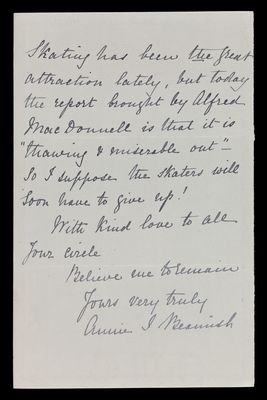 Skating has been the great
attraction lately, but today
the report brought by Alfred
MacDonnell is that it is
"thawing & miserable out"—
So I suppose the skaters will
soon have to give up!
With kind love to all
your circle
Believe me to remain
Yours very truly
Annie I Beamish